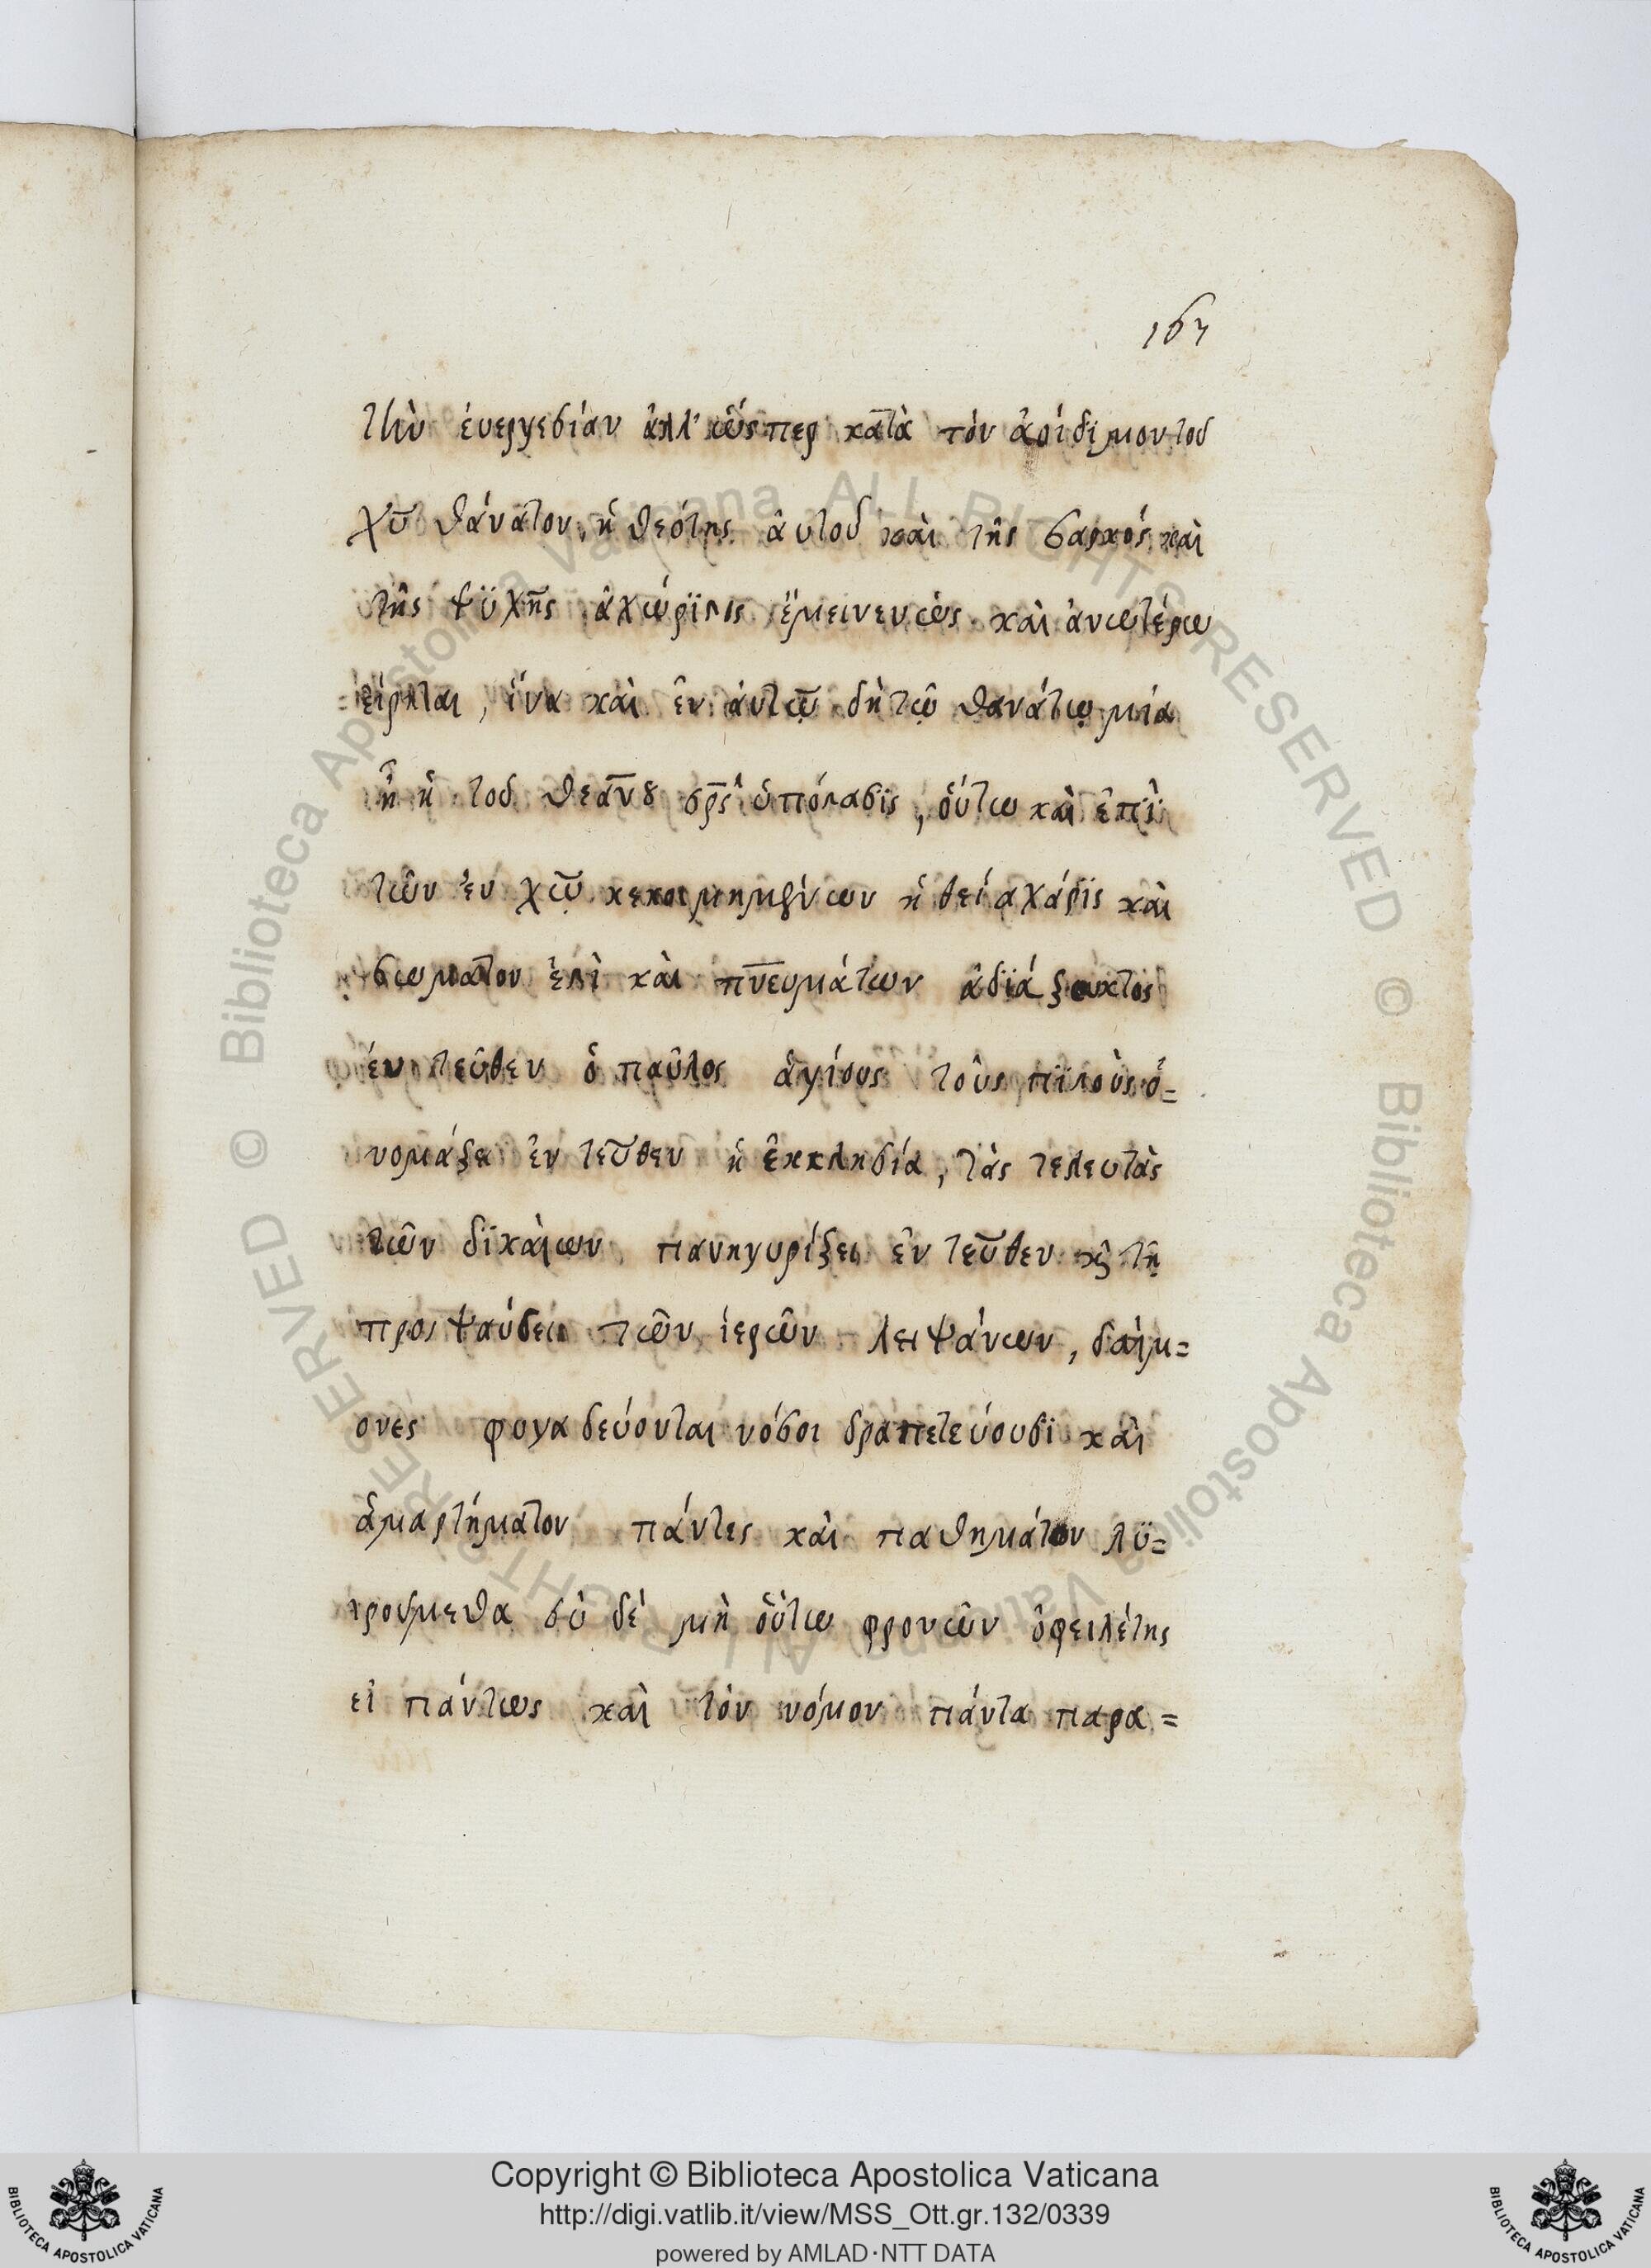 167
τὴν ἐυεργεσίαν ἀλλ' ὥσπερ κατὰ τὸν ἀοίδιμον τοῦ
χῦ θάνατον, ἡ θεότης ἀυτοῦ καὶ τῆς σαρκός καὶ
τῆς ψϋχῆς ἀχώρϊστος ἔμεινεν ὡς καὶ ἀνωτέρω
εἴρηται, ἵνα καὶ ἐν ἀυτῷ δὴ τῷ θανάτῳ μία
ἦ ἡ τοῦ ὑπόστασϊς, ὅυτω καὶ ἐπὶ
τῶν ἐν χῷ κεκοιμημένων ἡ θεία χάρϊς καὶ
σωμάτον ἐστὶ καὶ πνευμάτων ἀδϊάζευκτος
ἐντεῦθεν ὁ παῦλος ἁγίους τοὺς πϊστοὺς ὀ=
νομάζει ἐντεῦθεν ἡ ἐκκλησία, τὰς τελευτὰς
τῶν δϊκαίων πανηγυρίζει ἐντεῦθεν κ τῇ
προσψαύσει τῶν ἱερῶν λειψάνων, δαίμ=
ονες φυγαδεύονται νόσοι δραπετεύουσϊ καὶ
ἁμαρτήματον πάντες καὶ παθημάτον λϋ=
τρούμεθα σὺ δὲ μὴ ὅυτω φρονῶν ὀφειλέτης
εἶ πάντως καὶ τὸν νόμον πάντα παρα=
© Biblioteca Apostolica Vaticana ALL RIGHTS RESERVED © Biblioteca Apostolica Vaticana ALL RIGHTS RESERVED
Copyright © Biblioteca Apostolica Vaticana
http://digi.vatlib.it/view/MSS_Ott.gr.132/0339
powered by AMLAD·NTT DATA
BIBLIOTECA APOSTOLICA VATICANA
BIBLIOTECA APOSTOLICA VATICANA